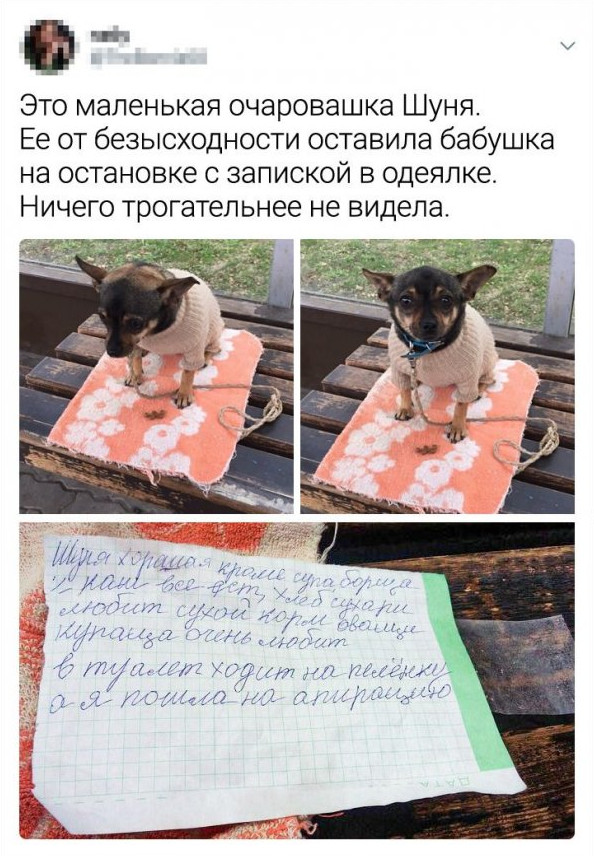 Это маленькая очаровашка Шуня.
Ее от безысходности оставила бабушка
на остановке с запиской в одеялке.
Ничего трогательнее не видела.
Шуня хорашая кроме супа, борща
и каш все ест, хлеб сухари
любит сухой корм оващи
купаца очень любит
в туалет ходит на пелёнку
а я пошла на апирацию
ДАТА